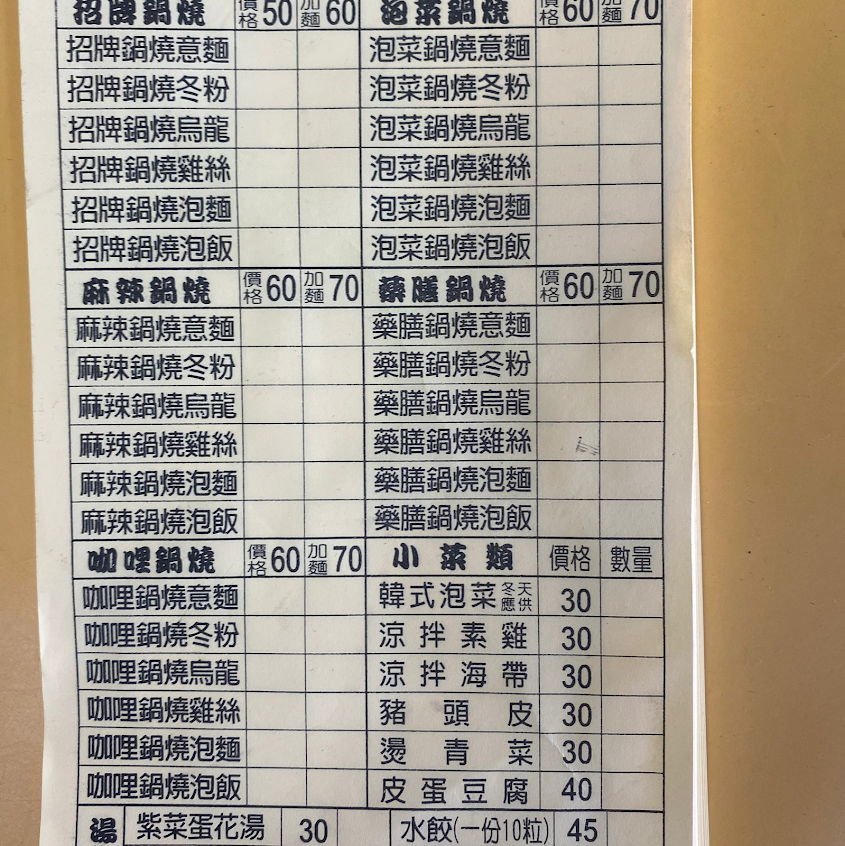 招牌鍋燒 價格50 加麵60 泡菜鍋燒 價格60 加麵70
招牌鍋燒意麵 泡菜鍋燒意麵
招牌鍋燒冬粉 泡菜鍋燒冬粉
招牌鍋燒烏龍 泡菜鍋燒烏龍
招牌鍋燒雞絲 泡菜鍋燒雞絲
招牌鍋燒泡麵 泡菜鍋燒泡麵
招牌鍋燒泡飯 泡菜鍋燒泡飯
麻辣鍋燒 價格60 加麵70 藥膳鍋燒 價格60 加麵70
麻辣鍋燒意麵 藥膳鍋燒意麵
麻辣鍋燒冬粉 藥膳鍋燒冬粉
麻辣鍋燒烏龍 藥膳鍋燒烏龍
麻辣鍋燒雞絲 藥膳鍋燒雞絲
麻辣鍋燒泡麵 藥膳鍋燒泡麵
麻辣鍋燒泡飯 藥膳鍋燒泡飯
咖哩鍋燒 價格60 加麵70 小菜類 價格 數量
咖哩鍋燒意麵 韓式泡菜冬天應供 30
咖哩鍋燒冬粉 涼拌素雞 30
咖哩鍋燒烏龍 涼拌海帶 30
咖哩鍋燒雞絲 豬頭皮 30
咖哩鍋燒泡麵 燙青菜 30
咖哩鍋燒泡飯 皮蛋豆腐 40
湯 紫菜蛋花湯 30 水餃(一份10粒) 45